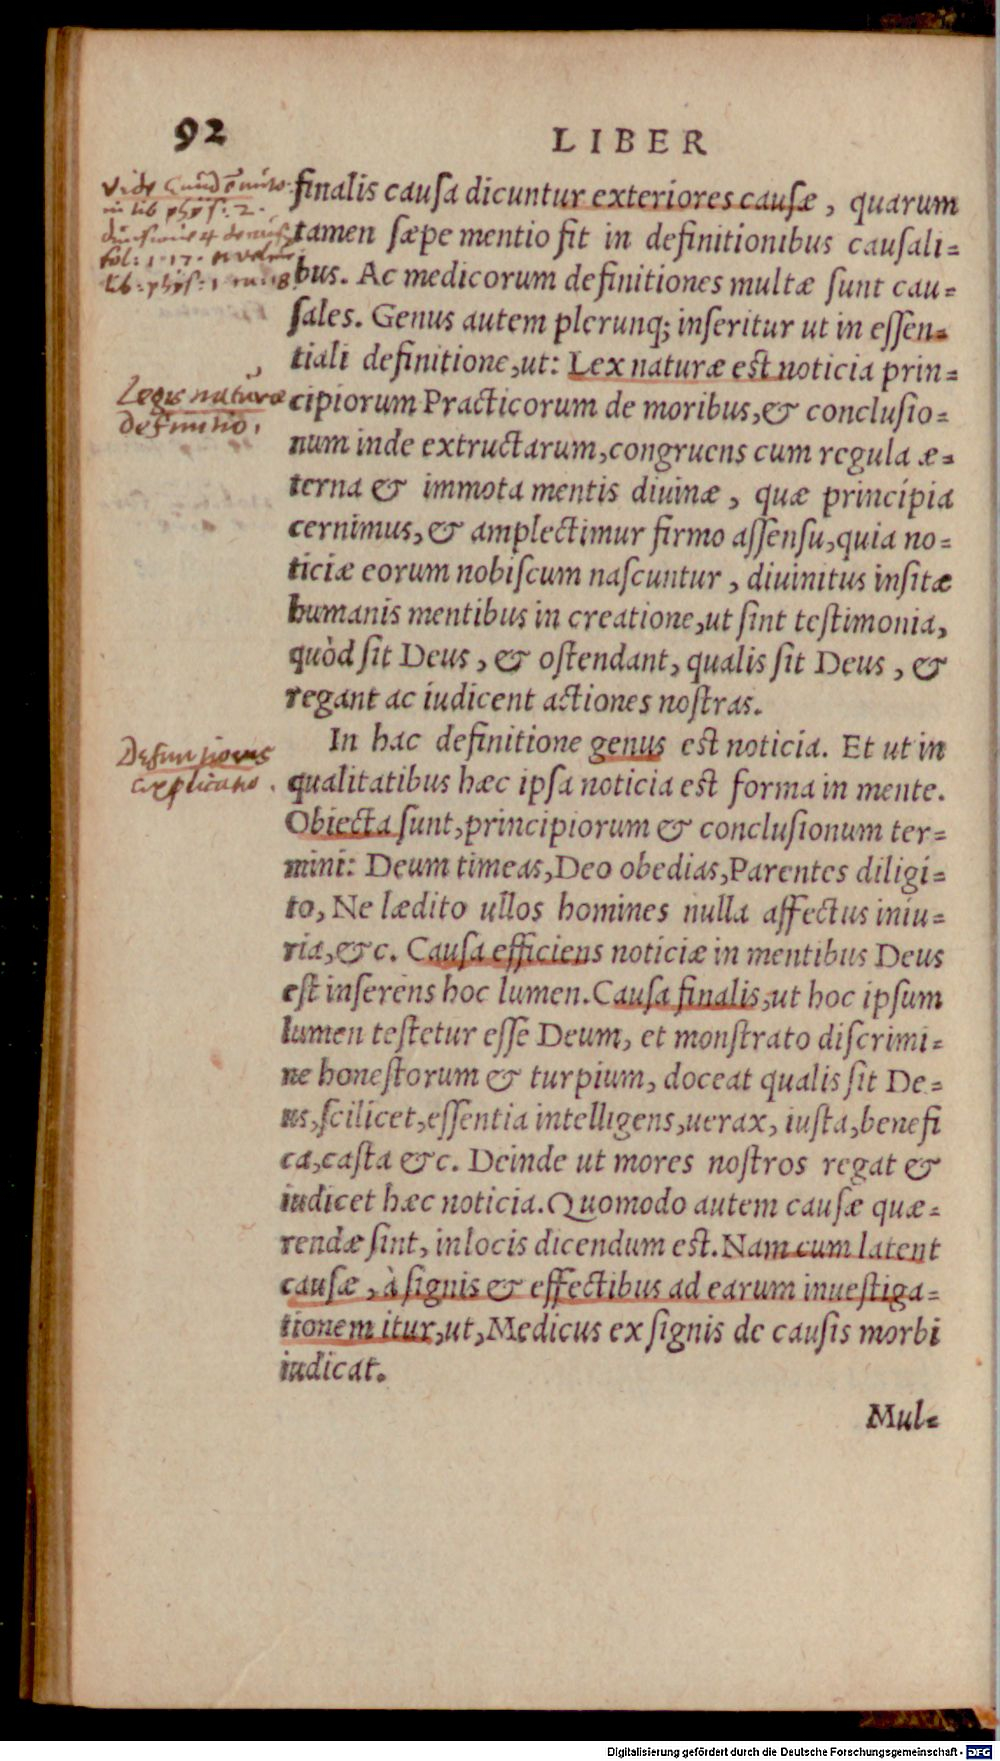 92
LIBER
Vide
in lib phys: 2.
lib: phys: 1
finalis cauſa dicuntur exteriores cauſæ, quarum
tamen ſæpe mentio fit in definitionibus cauſali=
bus. Ac medicorum definitiones multæ ſunt cau=
ſales. Genus autem plerunq; inſeritur ut in eſſen=
tiali definitione, ut: Lex naturæ est noticia prin=
Legis naturæ
definitio.
cipiorum Practicorum de moribus, & concluſio=
num inde extructarum, congruens cum regula æ=
terna & immota mentis diuinæ, quæ principia
cernimus, & amplectimur firmo aſſenſu, quia no=
ticiæ eorum nobiſcum naſcuntur, diuinitus inſitæ
humanis mentibus in creatione, ut ſint teſtimonia,
quòd ſit Deus, & oſtendant, qualis ſit Deus, &
regant ac iudicent actiones noſtras.
Definitionis
explicatio.
In hac definitione genus est noticia. Et ut in
qualitatibus hæc ipſa noticia est forma in mente.
Obiecta ſunt, principiorum & concluſionum ter=
mini: Deum timeas, Deo obedias, Parentes diligi=
to, Ne lædito ullos homines nulla affectus iniu=
ria, &c. Cauſa efficiens noticiæ in mentibus Deus
eſt inſerens hoc lumen. Cauſa finalis, ut hoc ipſum
lumen teſtetur eſſe Deum, et monſtrato diſcrimi=
ne honeſtorum & turpium, doceat qualis ſit De=
us, ſcilicet, eſſentia intelligens, uerax, iuſta, benefi
ca, caſta &c. Deinde ut mores noſtros regat &
iudicet hæc noticia. Quomodo autem cauſæ quæ=
rendæ ſint, in locis dicendum est. Nam cum latent
cauſæ, à ſignis & effectibus ad earum inueſtiga=
tionem itur, ut, Medicus ex ſignis de cauſis morbi
iudicat.
Mul=
Digitalisierung gefördert durch die Deutsche Forschungsgemeinschaft - DFG